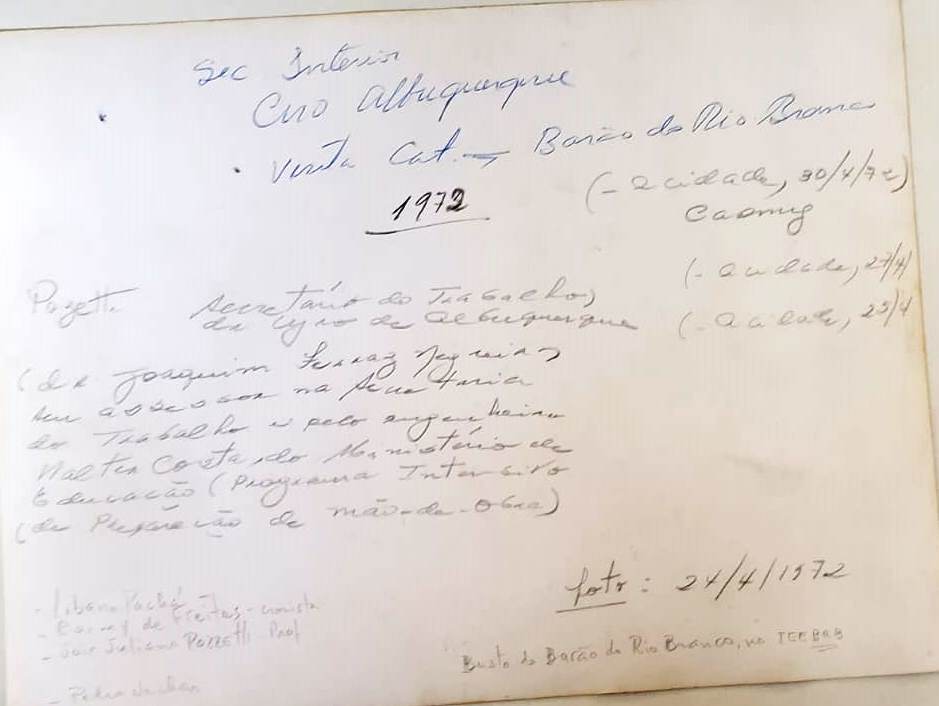 Sec Interior
Ciro Albuquerque
Visita Cat. → Barão do Rio Branco
1972
(- A cidade, 30/4/72)
Caomig
(- A cidade, 27/4/
(- A cidade, 25/4
Pozetti
Secretário do Trabalho,
dr Cyro de Albuquerque
(dr Joaquim Ferraz
seu assessor na Secretaria
do Trabalho e pelo engenheiro
Walter Costa, do Ministério de
Educação (Programa Intensivo
(de Preparação de mão-de-Obra)
foto: 24/4/1972
- Pachá
- de Freitas - cronista
- José Juliano Pozzetti - Prof
- Pedro
Busto do Barão do Rio Branco, no IEEBRB